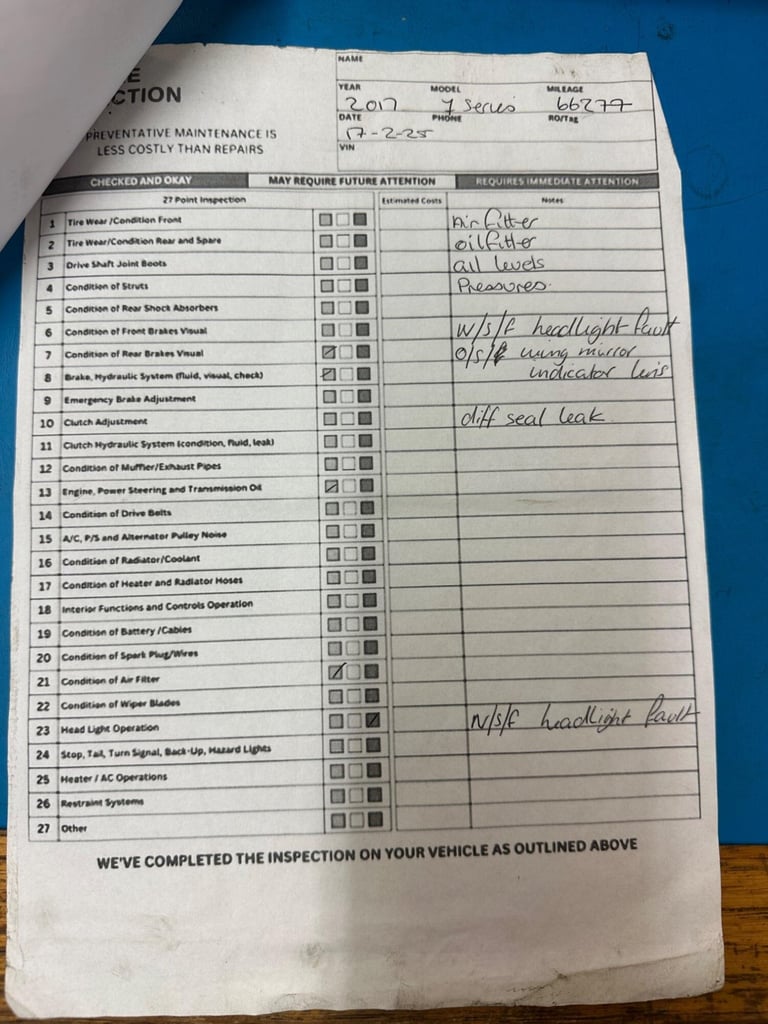 E
CTION
PREVENTATIVE MAINTENANCE IS
LESS COSTLY THAN REPAIRS
NAME
YEAR MODEL MILEAGE
2017 7 Series 66277
DATE PHONE RO/Tag
17-2-25
VIN
CHECKED AND OKAY MAY REQUIRE FUTURE ATTENTION REQUIRES IMMEDIATE ATTENTION
27 Point Inspection Estimated Costs Notes
1 Tire Wear /Condition Front Air filter
2 Tire Wear/Condition Rear and Spare oil filter
3 Drive Shaft Joint Boots all levels
4 Condition of Struts Pressures.
5 Condition of Rear Shock Absorbers
6 Condition of Front Brakes Visual N/S/F headlight fault
7 Condition of Rear Brakes Visual O/S/ wing mirror
8 Brake, Hydraulic System (fluid, visual, check) indicator lens
9 Emergency Brake Adjustment
10 Clutch Adjustment diff seal leak.
11 Clutch Hydraulic System (condition, fluid, leak)
12 Condition of Muffler/Exhaust Pipes
13 Engine, Power Steering and Transmission Oil
14 Condition of Drive Belts
15 A/C, P/S and Alternator Pulley Noise
16 Condition of Radiator/Coolant
17 Condition of Heater and Radiator Hoses
18 Interior Functions and Controls Operation
19 Condition of Battery /Cables
20 Condition of Spark Plug/Wires
21 Condition of Air Filter
22 Condition of Wiper Blades
23 Head Light Operation N/S/F headlight fault
24 Stop, Tail, Turn Signal, Back-Up, Hazard Lights
25 Heater / AC Operations
26 Restraint Systems
27 Other
WE'VE COMPLETED THE INSPECTION ON YOUR VEHICLE AS OUTLINED ABOVE